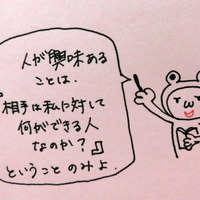 人が興味ある
ことは、
『相手は私に対して
何ができる人
なのか?』
ということのみよ。